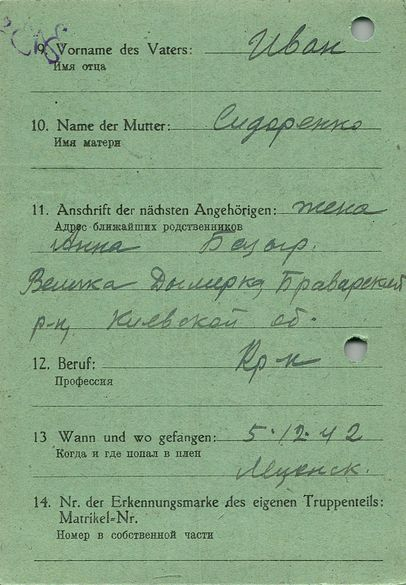 9. Vorname des Vaters: Иван
Имя отца
10. Name der Mutter: Сидоренко
Имя матери
11. Anschrift der nächsten Angehörigen: жена
Адрес ближайших родственников
Анна
Велика Дымерка, Браварский
р-н, Киевской об.
12. Beruf: Кр-н
Профессия
13 Wann und wo gefangen: 5.12.42
Когда и где попал в плен
Мценск.
14. Nr. der Erkennungsmarke des eigenen Truppenteils:
Matrikel-Nr.
Номер в собственной части